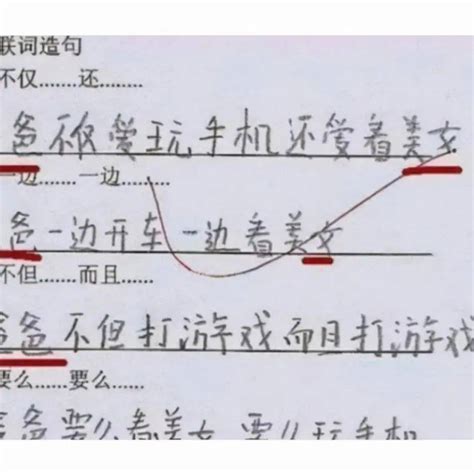 联词造句
不仅……还……
爸不仅爱玩手机还爱看美女
一边……一边……
爸一边开车一边看美女
不但……而且……
爸爸不但打游戏而且打游戏
要么……要么……
爸要么看美女要么玩手机